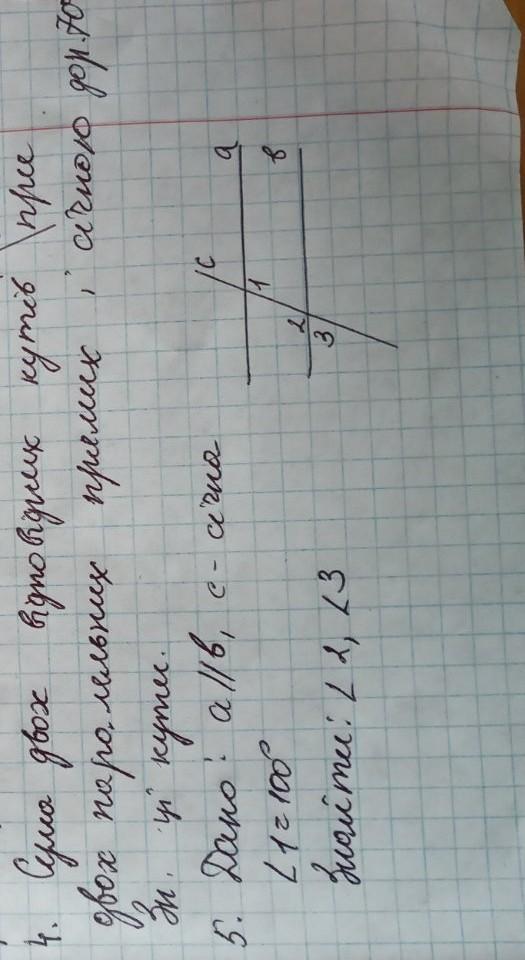 4. Сума двох відповідних кутів при
двох паралельних прямих і січною дор. 70°
Зн. ці кути.
5. Дано: a||b, c - січна
∠1=100°
Знайти: ∠2, ∠3
c
a
1
b
2
3